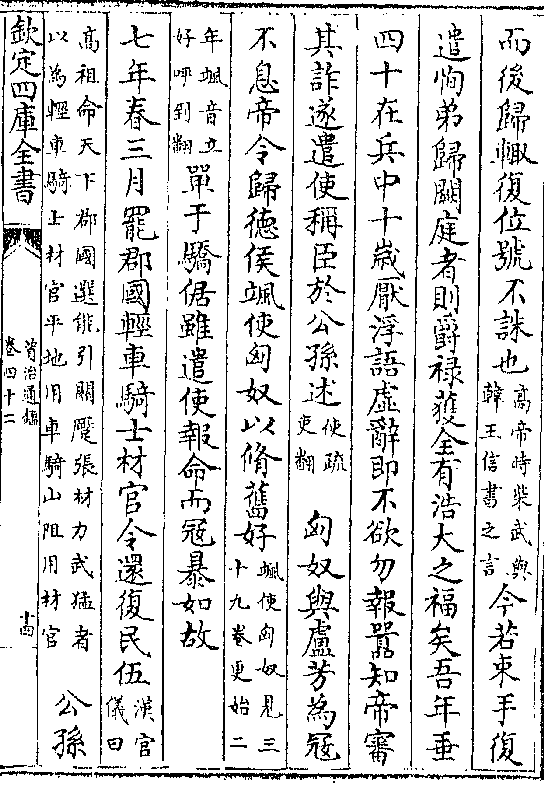 而後歸輒復位號不誅也高帝時柴武與韓王信書之言今若束手復
遣恂弟歸闕庭者則爵禄獲全有浩大之福矣吾年垂
四十在兵中十嵗厭浮語虛辭即不欲勿報囂知帝審
其詐遂遣使稱臣於公孫述使疏吏翻 匈奴與盧芳為冦
不息帝令歸德侯颯使匈奴以脩舊好颯使匈奴見三十九卷更始二
年颯音立好呼到翻單于驕倨雖遣使報命而冦暴如故
七年春三月罷郡國輕車騎士材官令還復民伍漢官儀曰
高祖命天下郡國選能引關蹷張材力武猛者以為輕車騎士材官平地用車騎山阻用材官 公孫
欽定四庫全書
資治通鑑
卷四十二
十四